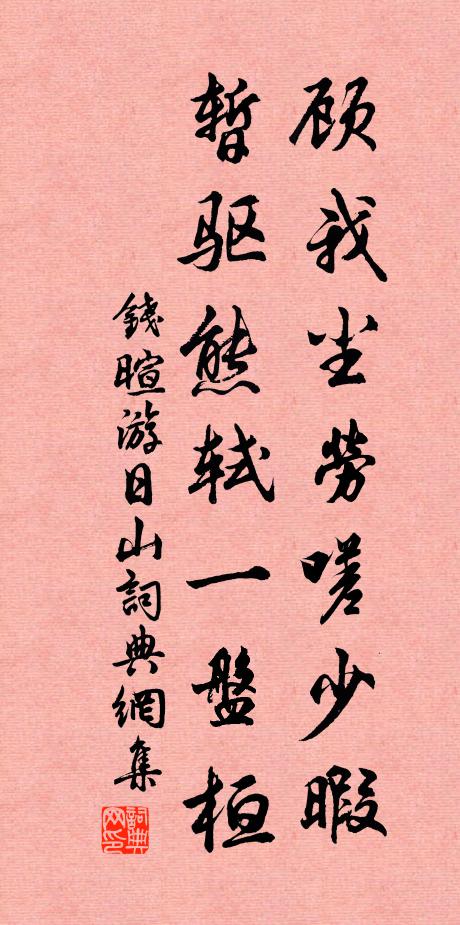 顾我尘劳嗟少暇
暂驱熊轼一盘桓
錢暄游日山詞典網集
詞典網印